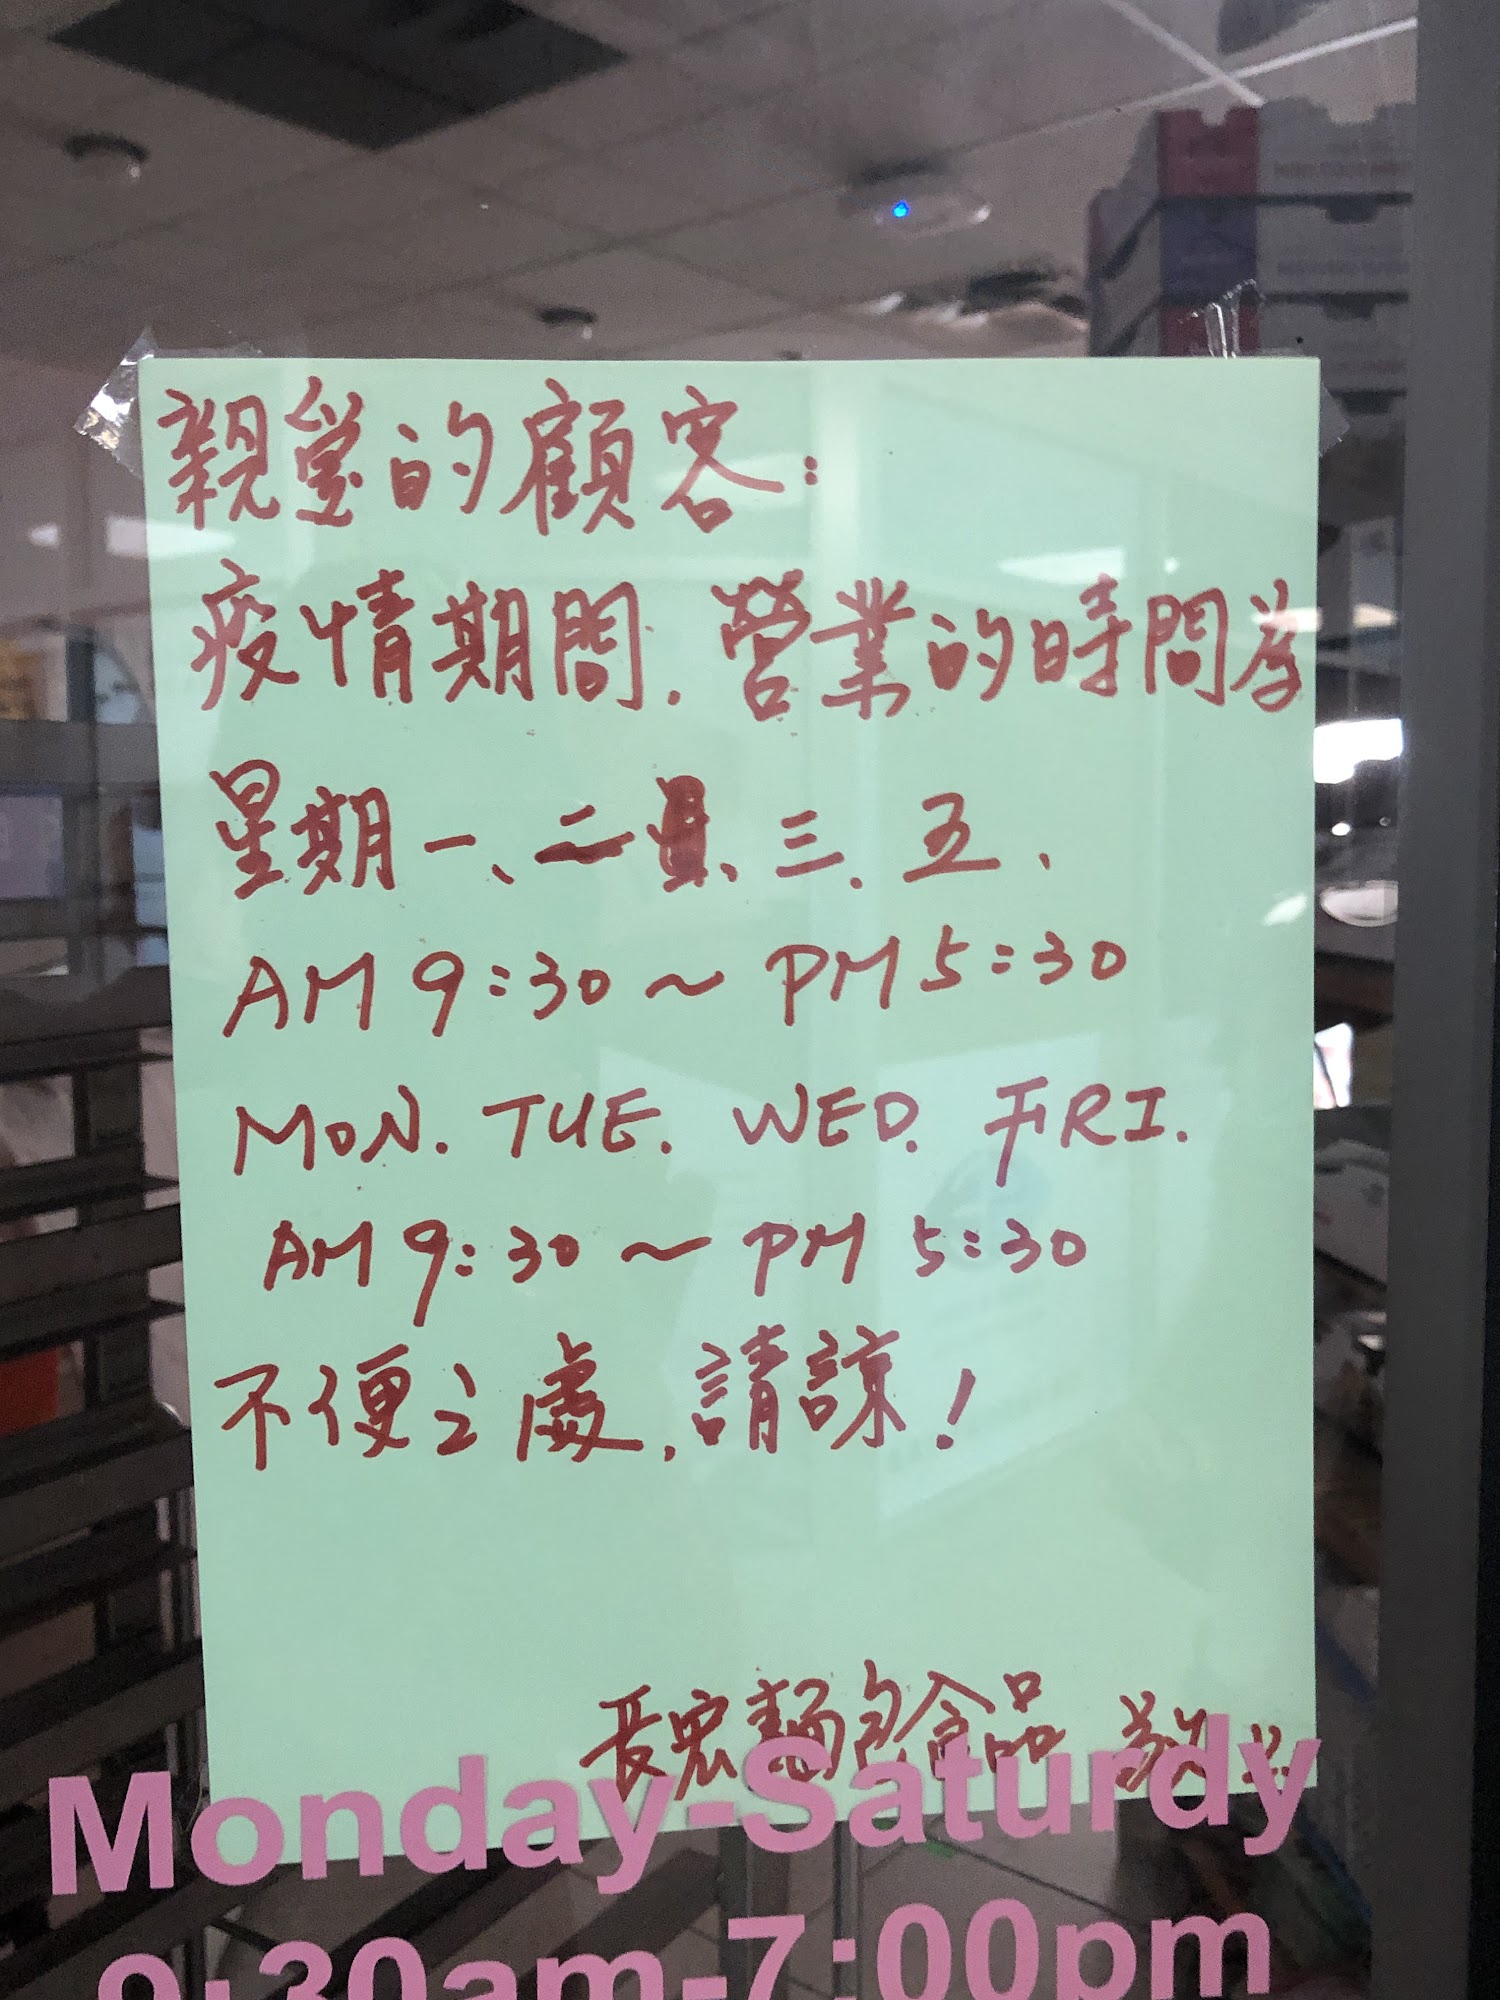 親愛的顧客:
疫情期間.營業的時間為
星期一、二、三.五、
AM 9:30~PM 5:30
MON. TUE. WED. FRI.
AM 9:30~PM 5:30
不便之處,請諒!
長宏麵包食品 敬上
Monday-Saturdy
9:30am-7:00pm